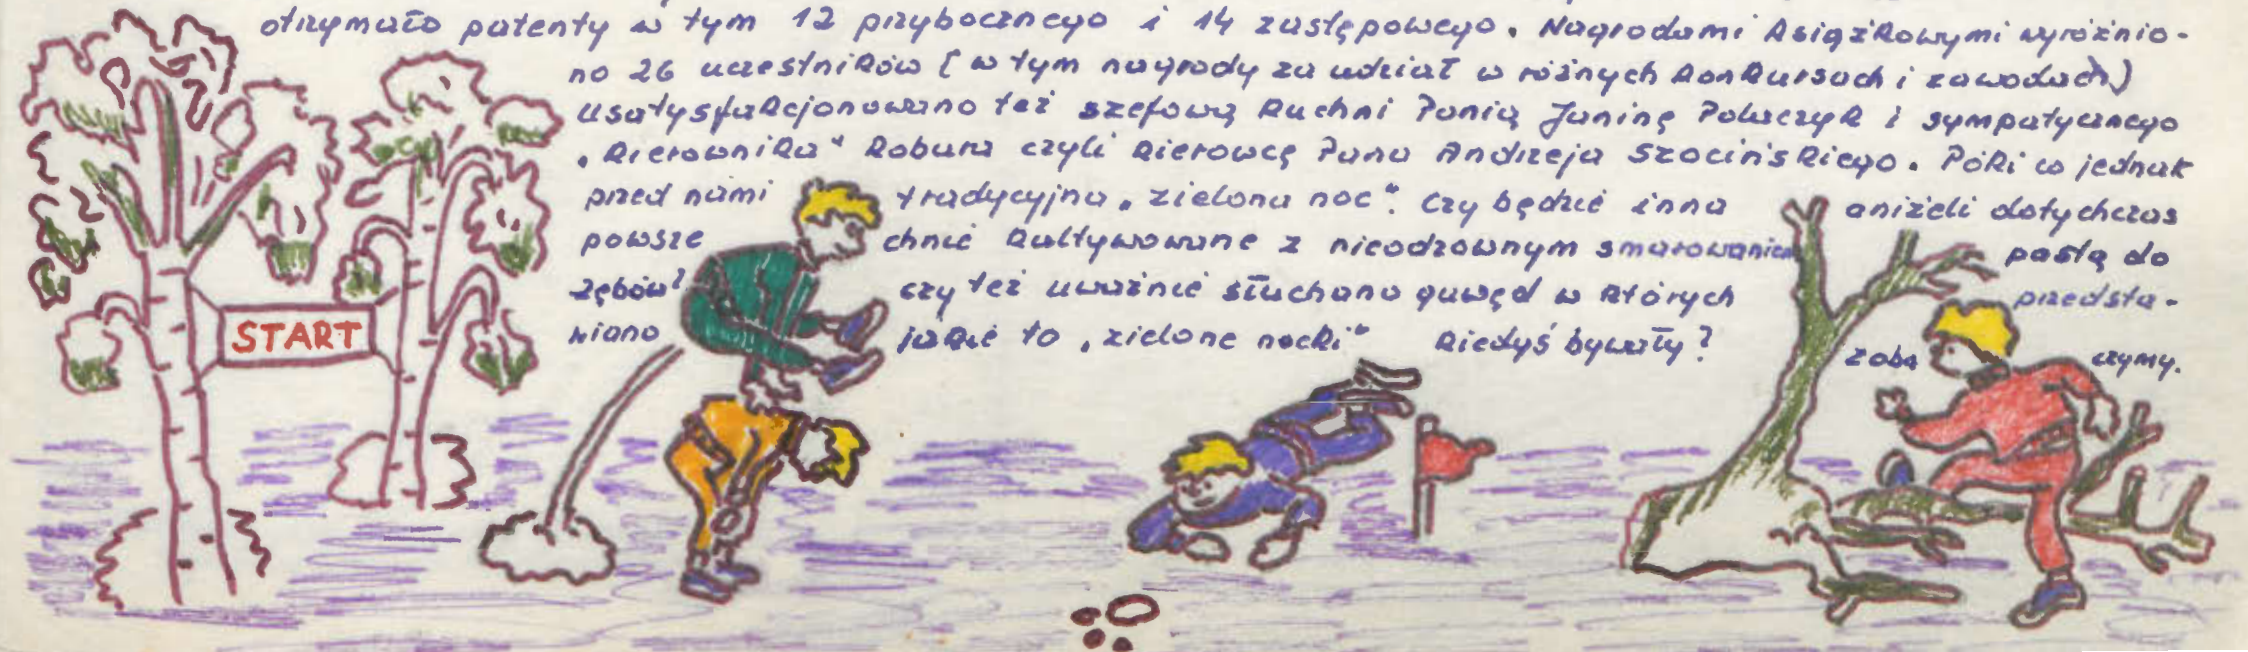 otrzymało patenty w tym 12 przybocznego i 14 zastępowego. Nagrodami książkowymi wyróżnio-
no 26 uczestników (w tym nagrody za udział w różnych konkursach i zawodach)
usatysfakcjonowano też szefową kuchni Panią Janinę Polaczyk i sympatycznego
„kierownika" Robura czyli kierowcę Pana Andrzeja Szocińskiego. Póki co jednak
przed nami tradycyjna „zielona noc". Czy będzie inna aniżeli dotychczas
powszechnie kultywowane z nieodzownym smarowaniem pastą do
zębów? czy też uważnie słuchano gawęd w których przedsta-
wiano jakie to „zielone nocki" kiedyś bywały? Zobaczymy.
START